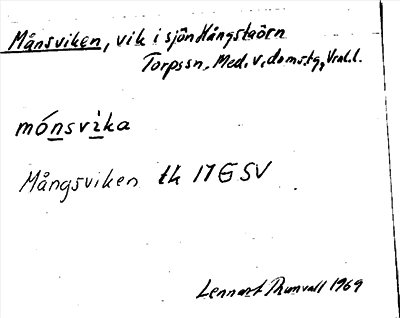 Månsviken, vik i sjön Hångstaörn
Torpssn, Med. v. domstg, Vrml.l.
mónsvika
Mångsviken tk 17 G SV
Lennart Thunvall 1969